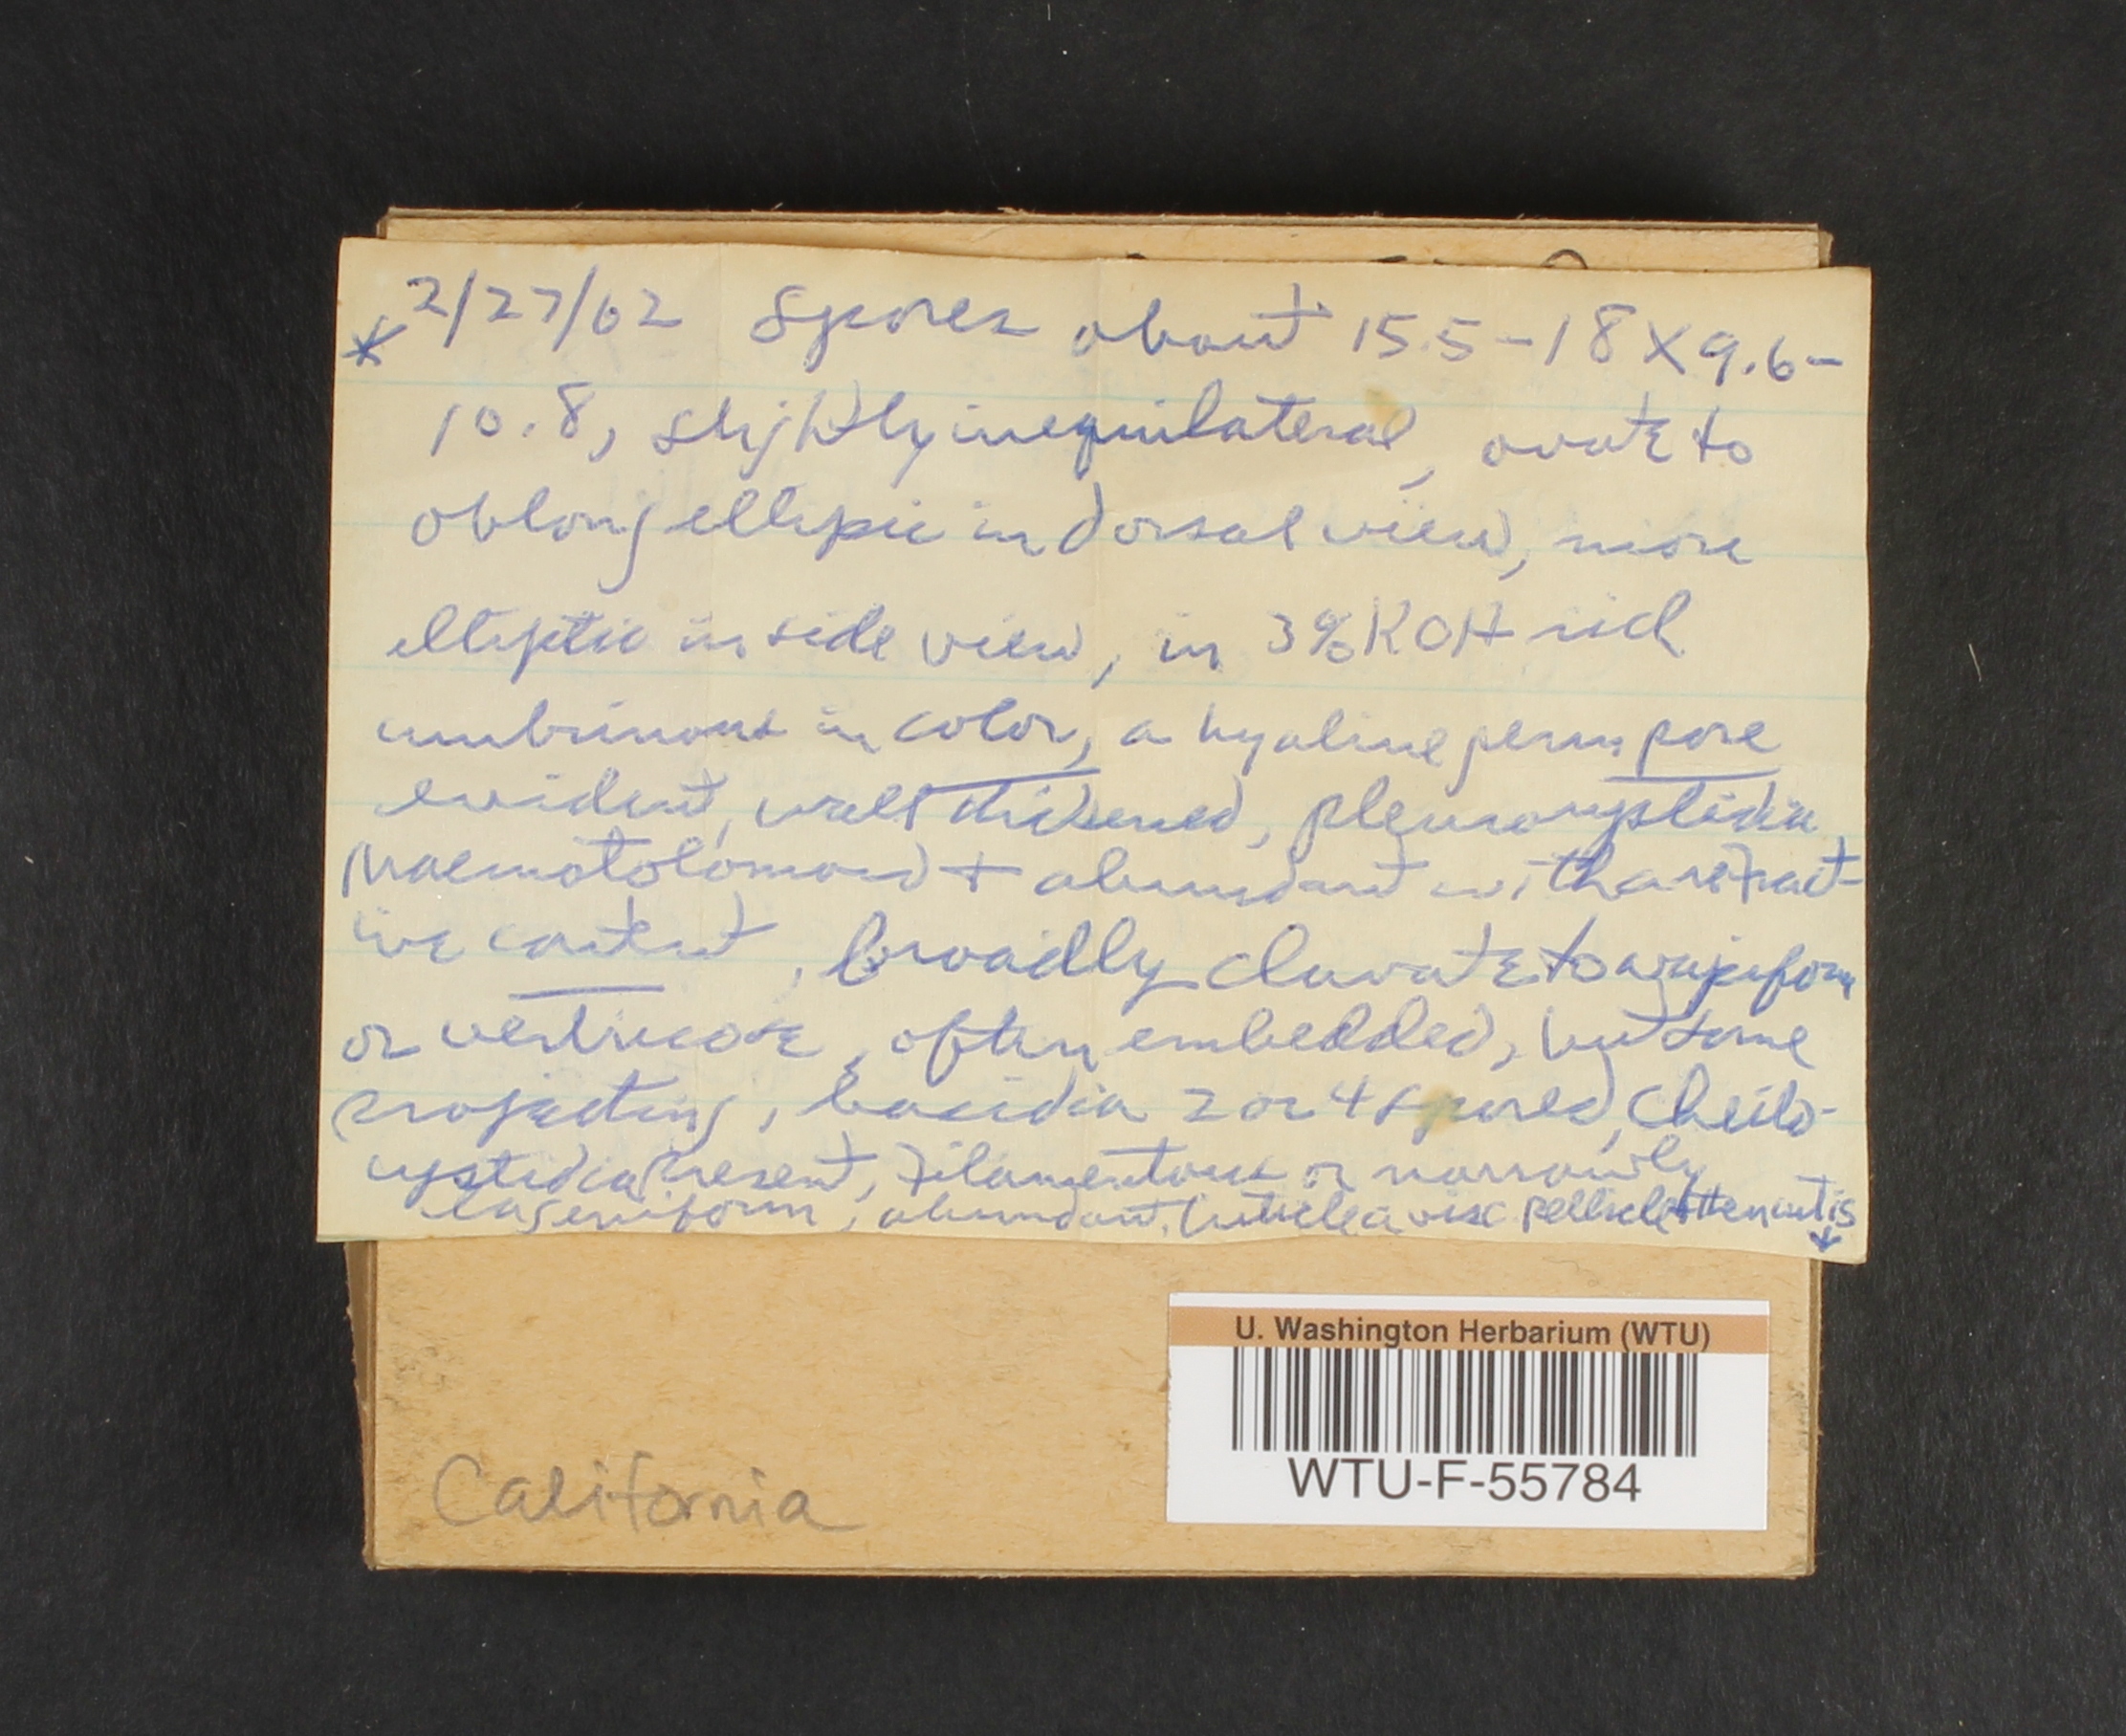 * 2/27/62 Spores about 15.5-18 X 9.6-
10.8, slightly inequilateral, ovate to
oblong elliptic in dorsal view, more
elliptic in side view, in 3% KOH rich
umbrinous in color, a hyaline germ pore
evident, wall thickened, pleurocystidia
Naematolomoid + abundant with a refract-
ive content, broadly clavate to
or ventricose, often embedded, but some
projecting, basidia 2 or 4 spored, Cheilo-
cystidia present, filamentous or narrowly
lageniform, abundant. Cuticle a visc. pellicle
U. Washington Herbarium (WTU)
WTU-F-55784
California